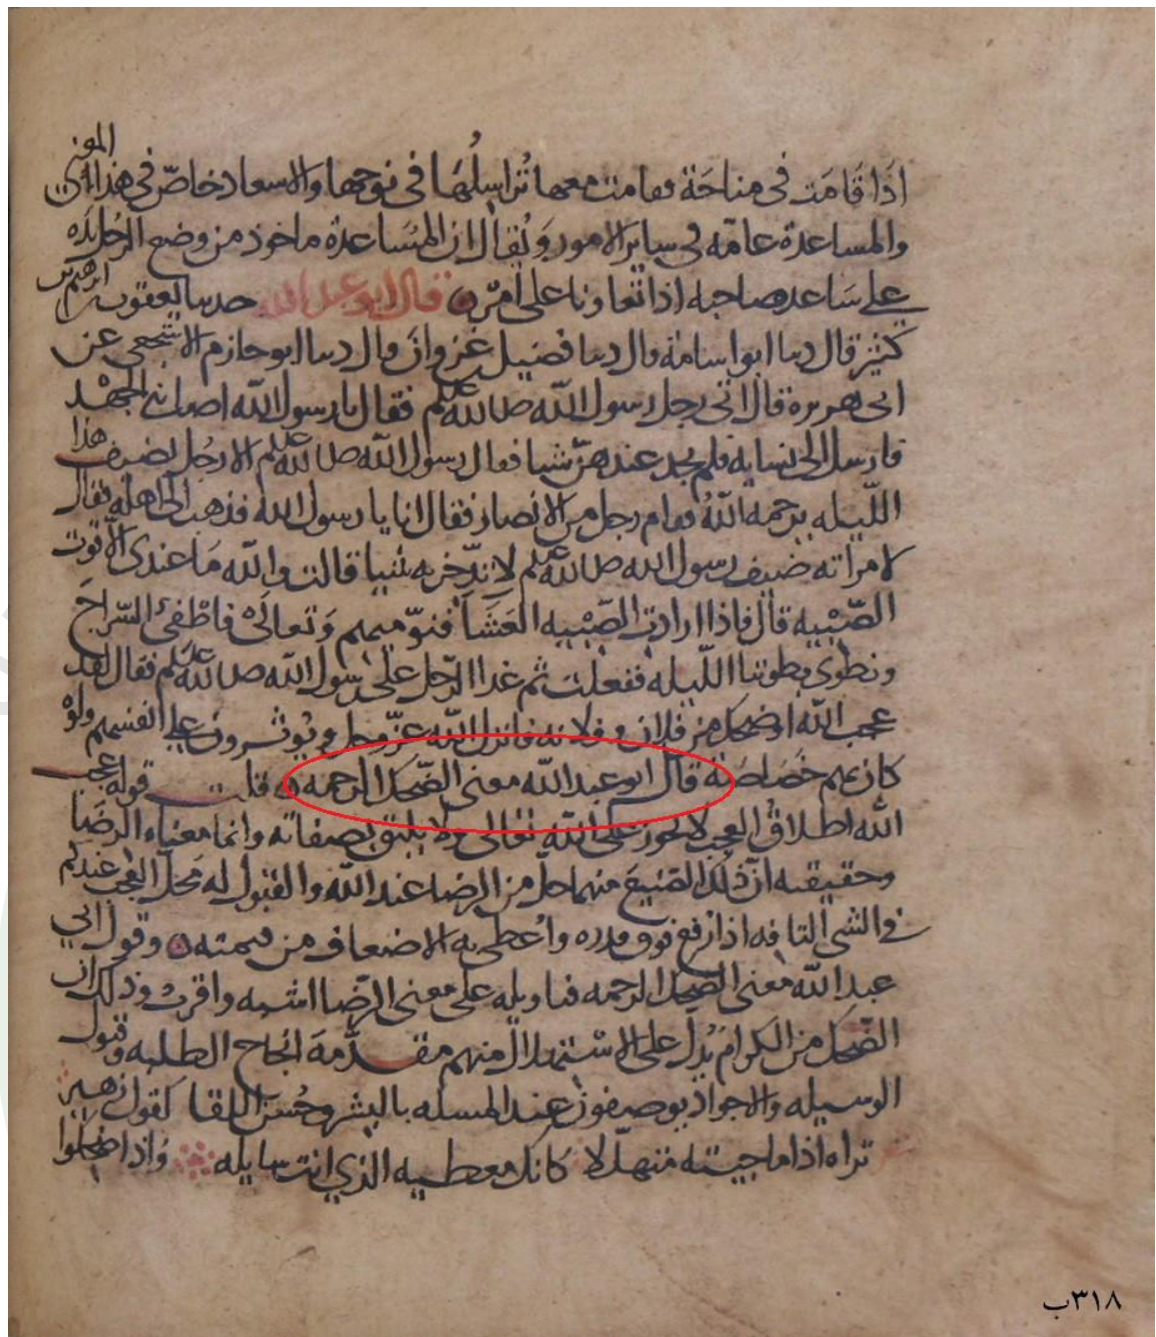 المعنى
اذَا قَامَت فى مناحَة فقامت معها تُراسِلُهَا فى نوحها والاسعاد خاصّ فى هذا
والمساعدة عامّه فى ساير الامور وَيُقال ان المسَاعدة ماخوذ من وضع الرجُل يَده
على سَاعد صاحبه اذا تعاونا على امرٍ قال ابو عبد الله حدسا يعقوب بن ابرهيم بن
كثيْر قال دسا ابو اسامة قال دسا فضيل بن غزوان قال دسا ابو حازم الاشجعى عن
ابى هريرة قال اتى رجل رسول الله صلى الله عليه وسلم فقال يا رسول الله اصابنى الجهْد
فارسل الى نسايه فلم يجد عندهنّ شيا فقال رسول الله صلى الله عليه وسلم الا رجُل يضيف هذا
الليله يرحمه اللهُ فقام رجل من الانصار فقال انا يا رسول الله فذهب الى اهله فقال
لامراته ضيف رسول الله صلى الله عليه وسلم لا تدّخريه شيا قالت والله مَا عندى الا قوت
الصّبْيه قال فاذا ارادت الصّبْيه العَشَا فنوّميهم وَتعالَىْ فاطْفئ السّراجَ
ونطوى بطوننا الليله ففعلت ثم غدا الرّجل على رسول الله صلى الله عليه وسلم فقال لقد
عجب الله او ضحك من فلان وفلانه فانزل الله عزّ وجل ويوثرون على انفسهم ولو
كان بهم خَصَاصَة قال ابو عبد الله معنى الضّحك الرحمه قلت قوله عجب
الله اطلاقُ العجب لا يجوز على الله تعالى ولا يليق بصفاته وانما معناه الرضَا
وحقيقته انّ ذلك الصّنيعَ منهما حلّ من الرضا عند الله والقبول له مَحلّ العجب عندكم
فى الشى التافه اذا رفع فوق قدره واُعطى به الاضعاف من قيمته وقول ابي
عبد الله معنى الضحك الرحمه فتاويله على معنى الرّضا اشبه واقربُ وذلك ان
الضّحك من الكرام يَدُل على الاسْتهلال منهم مقدّمة انجاح الطلبه وقبول
الوسيله والاجواد يوصفون عند المسله بالبشر وحُسن اللقا كقول زهير
تراه اذا ما جيته متهلّلا كانك معطيه الذي انت سايله وَاذا ضحكوا
٣١٨ب